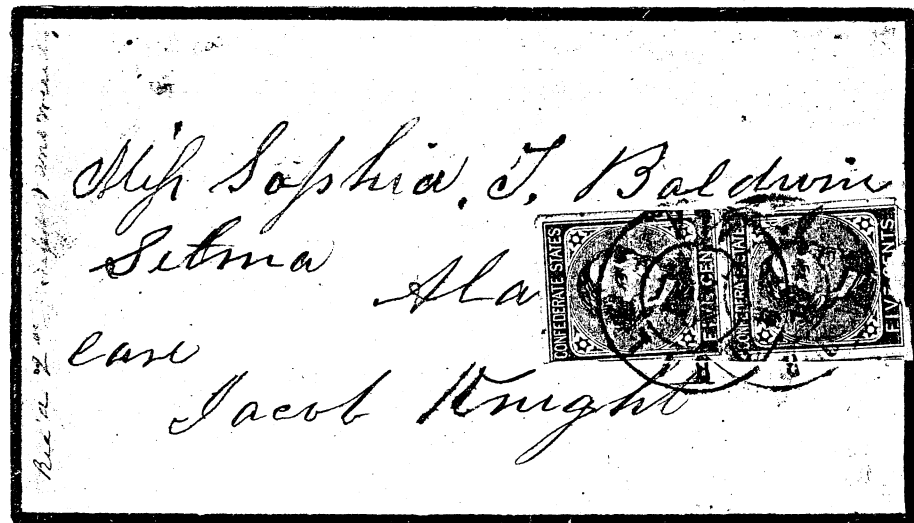 Miss Sophia. T. Baldwin
Selma
Ala
care
Jacob Knight
CONFEDERATE STATES
FIVE CENTS
CONFEDERATE STATES
FIVE CENTS
Rec'd